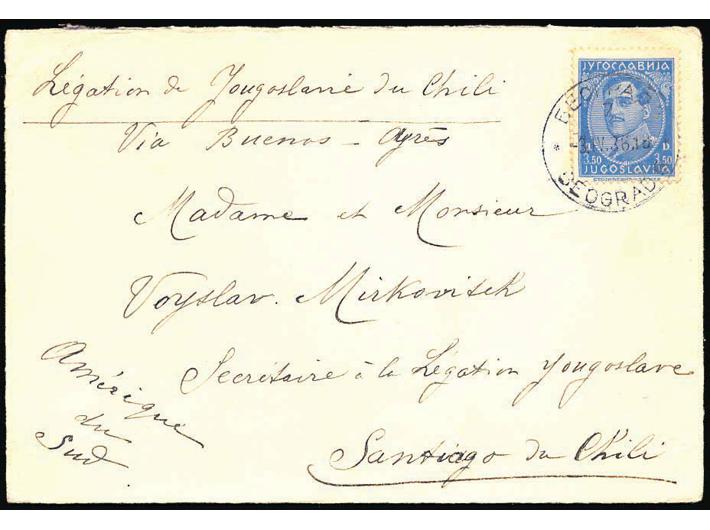 Légation de Yougoslavie du Chili
Via Buenos - Ayrès
Madame et Monsieur
Voyslav. Mirkovitch
Secrétaire à la Légation Yougoslave
Santiago du Chili
Amérique
du
Sud
ЈУГОСЛАВИЈА
D.
3.50 3.50
JUGOSLAVIJA
БЕОГРАД
BEOGRAD